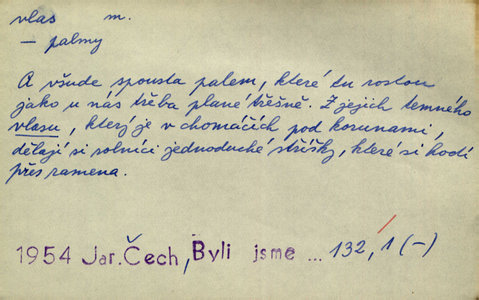 vlas m.
— palmy
A všude spousta palem, které tu rostou
jako u nás třeba plané třešně. Z jejich temného
vlasu, který je v chomáčích pod korunami,
dělají si rolníci jednoduché stříšky, které si hodí
přes ramena.
1954 Jar. Čech, Byli jsme ... 132, 1 (-)